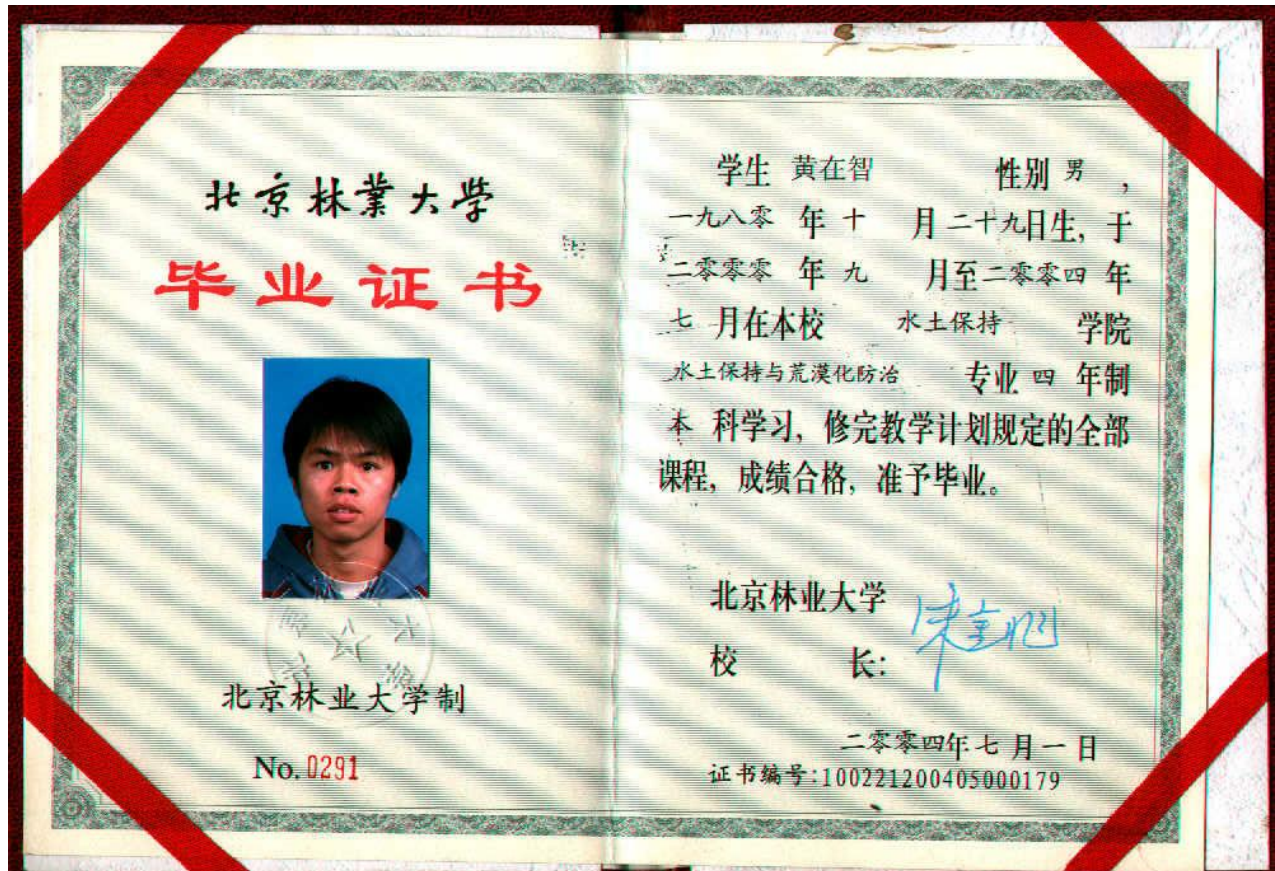 北京林業大學
毕业证书
北京林业大学制
No. 0291
学生 黄在智 性别 男 ,
一九八零 年 十 月 二十九日生, 于
二零零零 年 九 月至二零零四 年
七 月在本校 水土保持 学院
水土保持与荒漠化防治 专业 四 年制
本 科学习, 修完教学计划规定的全部
课程, 成绩合格, 准予毕业。
北京林业大学
校 长:
二零零四年 七 月 一 日
证书编号:100221200405000179